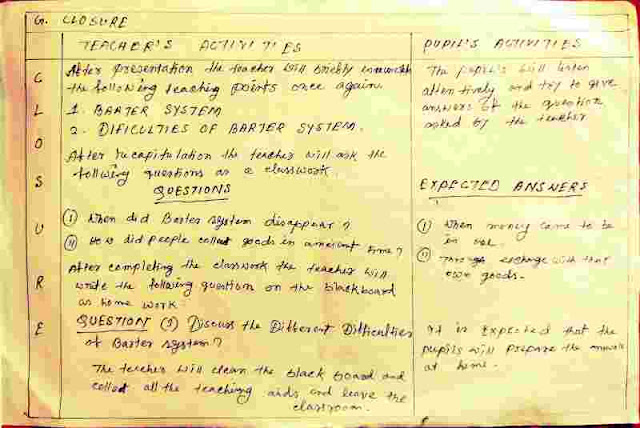 G. CLOSURE
TEACHER'S ACTIVITIES
After presentation the teacher will briefly
the following teaching points once again.
1. BARTER SYSTEM
2. DIFICULTIES OF BARTER SYSTEM.
After recapitulation the teacher will ask the
following questions as a classwork.
QUESTIONS
(i) When did Barter system disappear?
(ii) How did people collect goods in ancient time?
After completing the classwork the teacher will
write the following question on the blackboard
as home work.
QUESTION (1) Discuss the Different Difficulties
of Barter system?
The teacher will clean the black board and
collect all the teaching aids and leave the
classroom.
PUPIL'S ACTIVITIES
The pupil's will listen
attentively and try to give
answers of the question
asked by the teacher
EXPECTED ANSWERS
(i) When money came to be
in use.
(ii) Through exchange with their
own goods.
It is Expected that the
pupils will prepare the answer
at home.
C
L
O
S
U
R
E